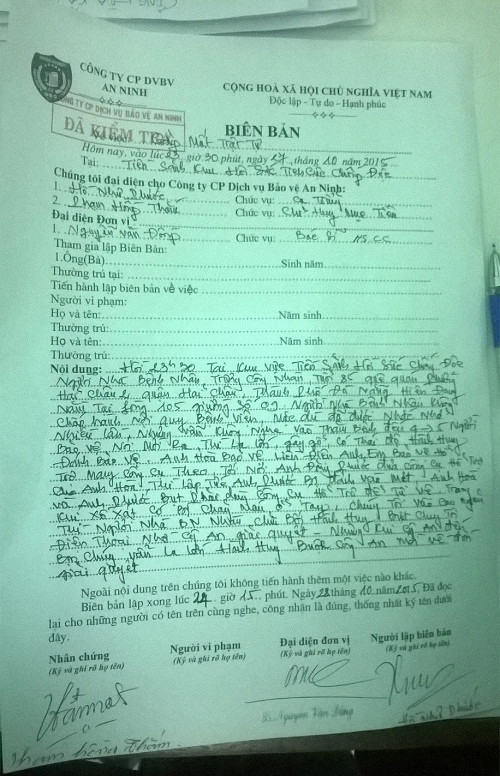 CÔNG TY CP DVBV
AN NINH
CỘNG HOÀ XÃ HỘI CHỦ NGHĨA VIỆT NAM
Độc lập - Tự do - Hạnh phúc
CÔNG TY CP DỊCH VỤ BẢO VỆ AN NINH
ĐÃ KIỂM TRA
BIÊN BẢN
Mất Trật Tự
Hôm nay, vào lúc 23 giờ 30 phút, ngày 27 tháng 10 năm 2015
Tại: Tiền Sảnh Khu Hồi Sức Tích Cực Chống Độc
Chúng tôi đại diện cho Công ty CP Dịch vụ Bảo vệ An Ninh:
1. Hồ Như Phước Chức vụ: Ca Trưởng
2. Phạm Hồng Thắm Chức vụ: Chỉ Huy Mục Tiêu
Đại diện Đơn vị
1. Nguyễn Văn Đông Chức vụ: Bác sĩ HSCC
Tham gia lập Biên Bản:
1.Ông(Bà) Sinh năm
Thường trú tại:
Tiến hành lập biên bản về việc
Người vi phạm:
Họ và tên: Năm sinh
Thường trú:
Họ và tên: Năm sinh
Thường trú:
Nội dung: Hồi 23h30 Tại Khu vực Tiền Sảnh Hồi Sức Chống Độc
Người Nhà Bệnh Nhân Trương Công Nhân, Tuổi 85 quê quán Phường
Hải Châu 2, quận Hải Châu, Thành Phố Đà Nẵng Hiện Đang
Nằm Tại Phòng 105 giường Số 09 Người Nhà Bệnh Nhân Không
Chấp hành Nội quy Bệnh Viện, Mặc dù đã được Nhắc Nhở
Nhiều lần, Nhưng vẫn Không Nghe vào Thăm Bệnh đông 4 → 5 Người
Bảo vệ Nó Mời Ra Thì La lớn gây gổ Có Thái độ Hành Hung
Đánh Bảo Vệ. Anh Hoà Bảo Vệ Liền Điện Anh Em Bảo Vệ Hỗ
Trợ Mang Công Cụ Theo Tới Nơi Anh Phước đưa Công Cụ Hỗ Trợ
Cho Anh Hoà Thì Lập Tức Anh Phước Bị Đánh vào Mặt, Anh Hoà
và Anh Phước Bắt Phải dùng Công Cụ Hỗ Trợ để Tự Vệ Trong
Khi Xô Xát Có Bị Chảy Máu ở Tay, Chúng Tôi Vào Can ngăn
Thì Người Nhà B.N Nhân Chửi Bới Hành Hung, Buộc Chúng Tôi
Điện Thoại Nhờ Công An giải quyết - Nhưng Khi Công An đến
Bọn Chúng vẫn La lớn Hành Hung Buộc Công An Mời về đồn
giải quyết
Ngoài nội dung trên chúng tôi không tiến hành thêm một việc nào khác.
Biên bản lập xong lúc 24 giờ 15 phút. Ngày 28 tháng 10 năm 2015. Đã đọc
lại cho những người có tên trên cùng nghe, công nhận là đúng, thống nhất ký tên dưới
đây.
Nhân chứng Người vi phạm Đại diện đơn vị Người lập biên bản
(Ký và ghi rõ họ tên) (Ký và ghi rõ họ tên) (Ký và ghi rõ họ tên) (Ký và ghi rõ họ tên)
BS. Nguyễn Văn Đông Hồ Như Phước
Phạm Hồng Thắm